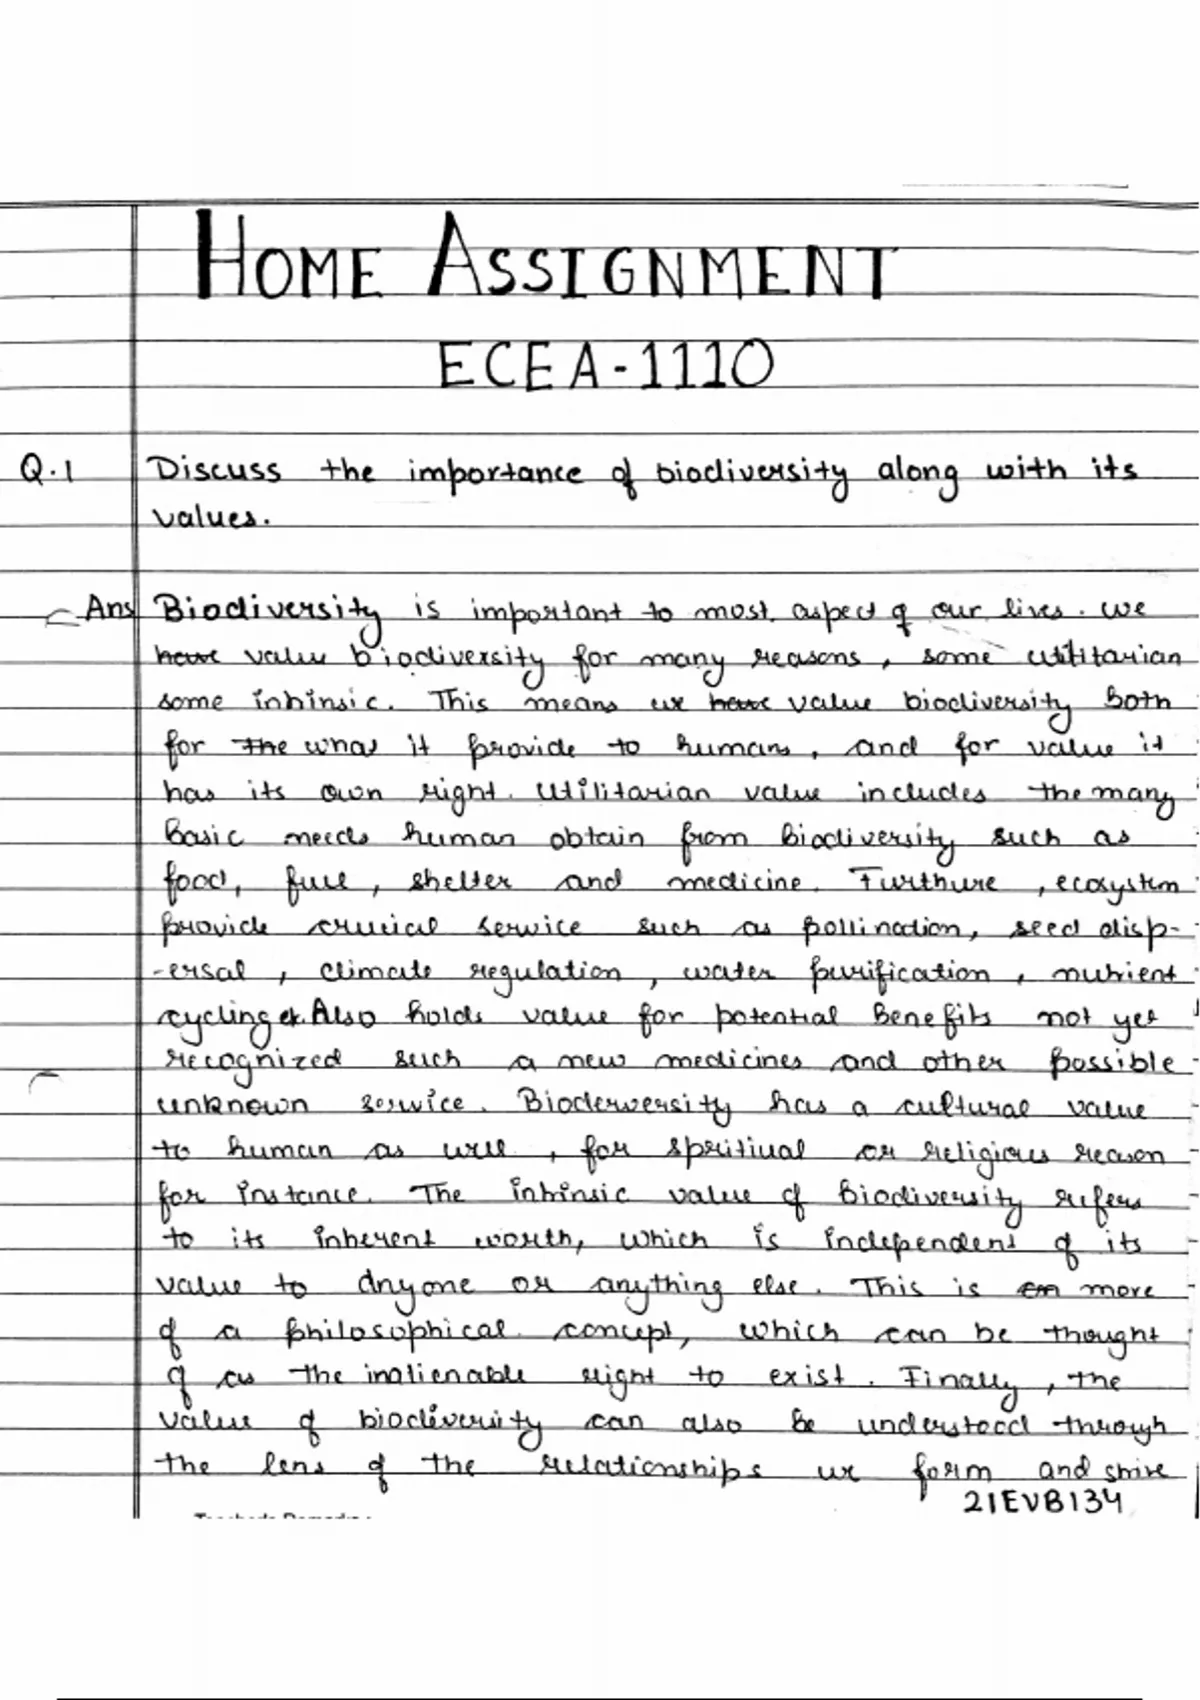 HOME ASSIGNMENT
ECEA-1110
Q.1 Discuss the importance of biodiversity along with its
values.
Ans Biodiversity is important to most aspect of our lives. We
have value biodiversity for many reasons, some utilitarian
some intrinsic. This means we have value biodiversity both
for the what it provide to humans, and for value it
has its own right. Utilitarian value includes the many
basic needs human obtain from biodiversity such as
food, fuel, shelter and medicine. Furthure, ecosystem
provide crucial service such as pollination, seed disp-
-ersal, climate regulation, water purification, nutrient
cycling et. Also holds value for potential benefits not yet
recognized such a new medicines and other possible
unknown service. Bioderversity has a cultural value
to human as well, for spritiual or religious reason
for instance. The intrinsic value of biodiversity refers
to its inherent worth, which is independent of its
value to anyone or anything else. This is on more
of a philosophical concept, which can be thought
of as the inalienable right to exist. Finally, the
value of biodiversity can also be understood through
the lens of the relationships we form and strive
21EVB134